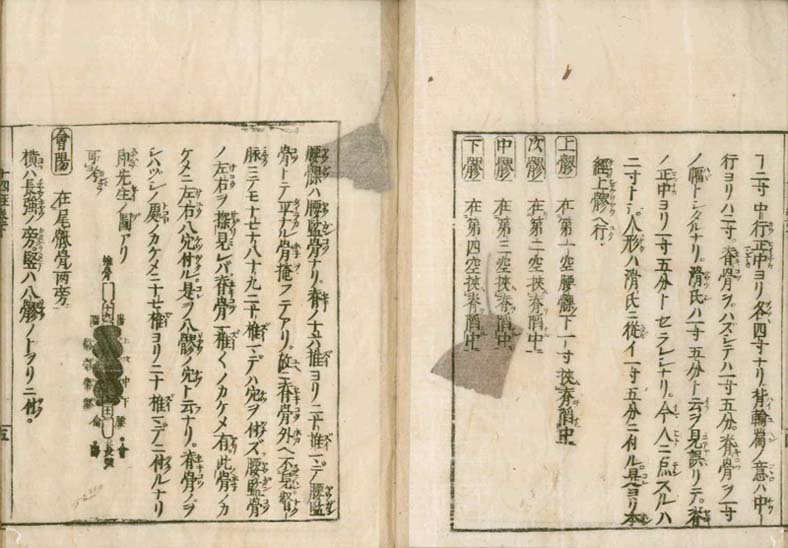 フ二寸中行正中ヨリ各四寸ナリ背輪篇ノ意ハ中一
行ヨリハ二寸脊骨ヲハズシテハ一寸五分脊骨ヲ一寸
ノ幅トシタルナリ滑氏ハ一寸五分ト云ヲ見誤リテ脊
ノ正中ヨリ一寸五分トセラレシナリ今人ニ点スルハ
二寸トシ人形ハ滑氏ニ從イ一寸五分ニ付ル是ヨリ本
經上髎ヘ行
上髎 在第一空腰髁下一寸挾脊䧟中
次髎 在第二空挾脊䧟中
中髎 在第三空挾脊䧟中
下髎 在第四空挾脊䧟中
腰髁ハ腰監骨ナリ脊ノ十六推ヨリ二十推マデ腰監
骨トテ平タル骨掩フテアリ故ニ脊骨外ヘ不見
脉ミテモ十七十八十九二十推マデハ穴ヲ付ズ腰監骨
ノ左右ヲ探見レバ脊骨一推〱ノカケメ有此骨ノカ
ケメニ左右八穴付ル是ヲ八髎ノ穴ト云ナリ脊骨ノヲ
シハツシノ處ノカケメ二十七推ヨリ二十推マデニ付ルナリ
先生ノ圖アリ
可考
推骨
中
下
會
長強
會陽 在尾髎骨兩旁
橫ハ長強ノ旁竪ハ八髎ノトヲリニ付
五